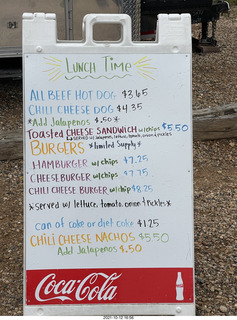 LUNCH TIME
ALL BEEF HOT DOG $3.65
CHILI CHEESE DOG $4.35
*Add Jalapenos $.50*
Toasted CHEESE SANDWICH w/chips $5.50
BURGERS *limited Supply*
HAMBURGER w/chips $7.25
CHEESEBURGER w/chips $7.75
CHILI CHEESE BURGER w/chip $8.25
*served w/ lettuce, tomato, onion & pickles*
can of coke or diet coke $1.25
CHILI CHEESE NACHOS $5.50
Add Jalapenos $.50
Coca-Cola
2021-10-12 16:58